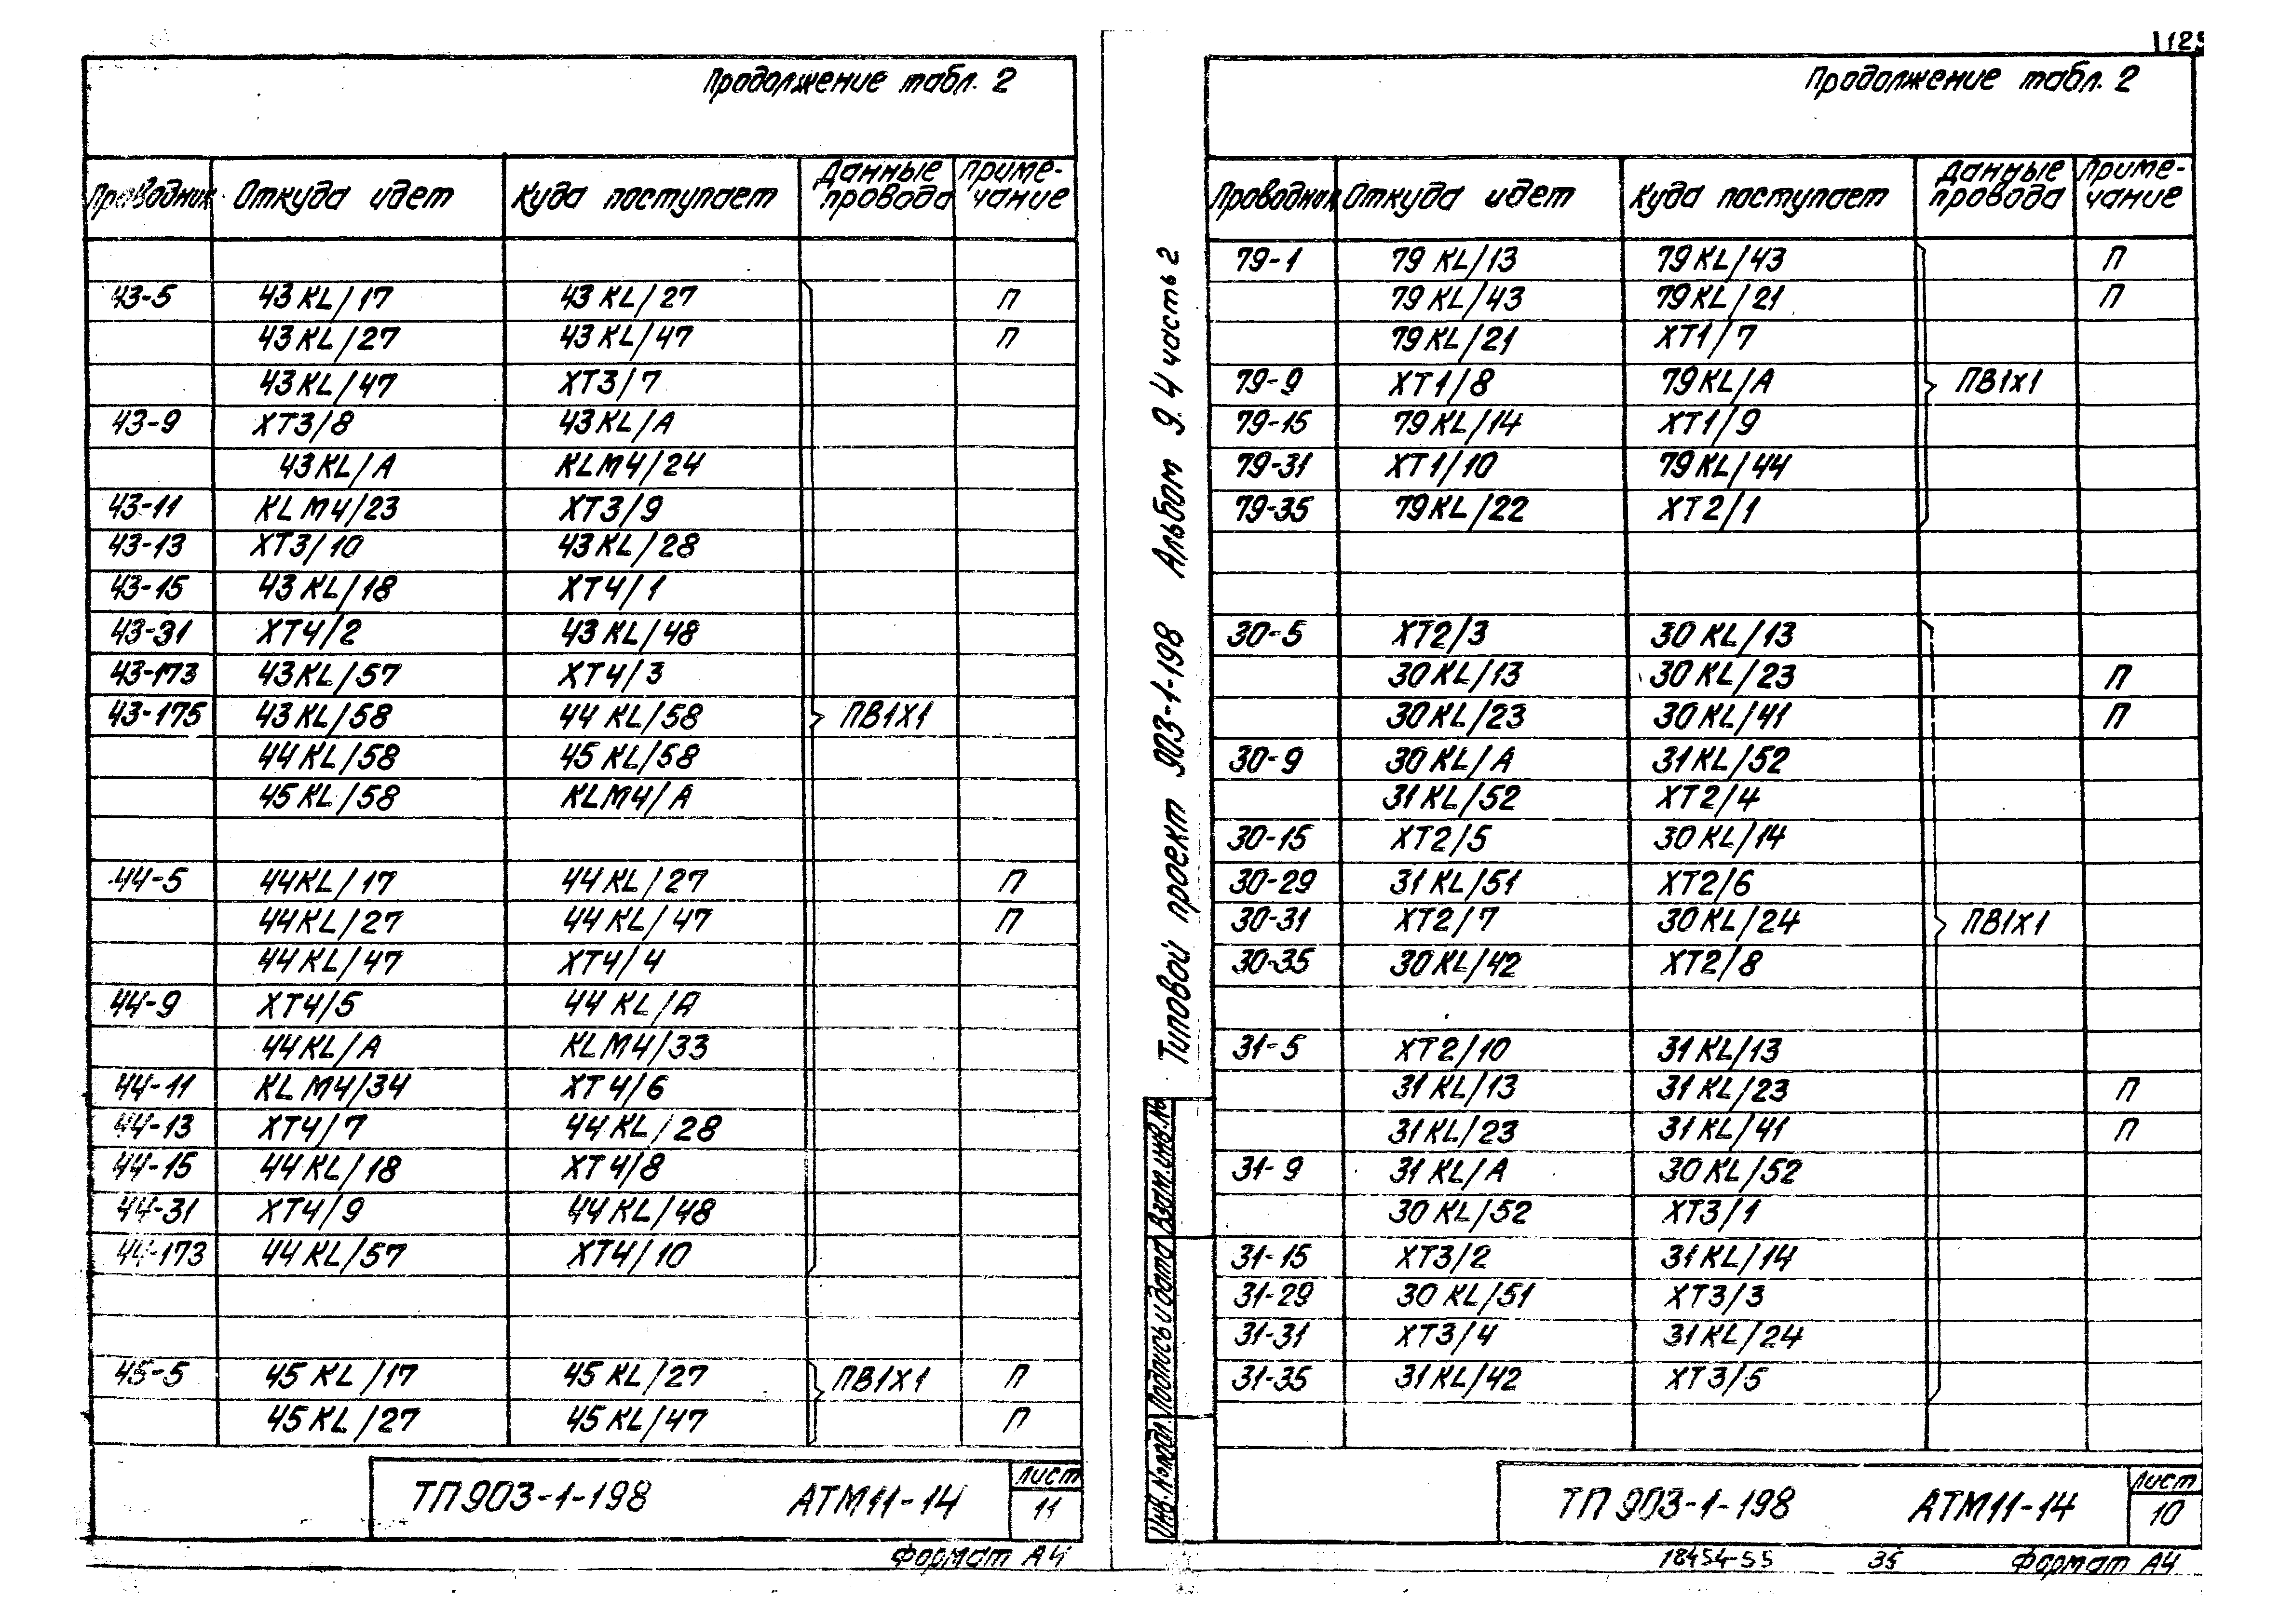 Продолжение табл. 2
Проводник Откуда идет Куда поступает Данные провода Примечание
43-5 43KL/17 43KL/27 П
43KL/27 43KL/47 П
43KL/47 XT3/7
43-9 XT3/8 43KL/A
43KL/A KLM4/24
43-11 KLM4/23 XT3/9
43-13 XT3/10 43KL/28
43-15 43KL/18 XT4/1
43-31 XT4/2 43KL/48
43-173 43KL/57 XT4/3
43-175 43KL/58 44KL/58 ПВ1Х1
44KL/58 45KL/58
45KL/58 KLM4/A
44-5 44KL/17 44KL/27 П
44KL/27 44KL/47 П
44KL/47 XT4/4
44-9 XT4/5 44KL/A
44KL/A KLM4/33
44-11 KLM4/34 XT4/6
44-13 XT4/7 44KL/28
44-15 44KL/18 XT4/8
44-31 XT4/9 44KL/48
44-173 44KL/57 XT4/10
45-5 45KL/17 45KL/27 ПВ1Х1 П
45KL/27 45KL/47 П
ТП 903-1-198 АТМ11-14 Лист 11
Формат А4
Типовой проект 903-1-198 Альбом 9.4 часть 2
Инв.№подл. Подпись и дата Взам.инв.№
Продолжение табл. 2
Проводник Откуда идет Куда поступает Данные провода Примечание
79-1 79KL/13 79KL/43 П
79KL/43 79KL/21 П
79KL/21 XT1/7
79-9 XT1/8 79KL/A ПВ1х1
79-15 79KL/14 XT1/9
79-31 XT1/10 79KL/44
79-35 79KL/22 XT2/1
30-5 XT2/3 30KL/13
30KL/13 30KL/23 П
30KL/23 30KL/41 П
30-9 30KL/A 31KL/52
31KL/52 XT2/4
30-15 XT2/5 30KL/14
30-29 31KL/51 XT2/6
30-31 XT2/7 30KL/24 ПВ1Х1
30-35 30KL/42 XT2/8
31-5 XT2/10 31KL/13
31KL/13 31KL/23 П
31KL/23 31KL/41 П
31-9 31KL/A 30KL/52
30KL/52 XT3/1
31-15 XT3/2 31KL/14
31-29 30KL/51 XT3/3
31-31 XT3/4 31KL/24
31-35 31KL/42 XT3/5
ТП 903-1-198 АТМ11-14 Лист 10
18454-55 35 Формат А4